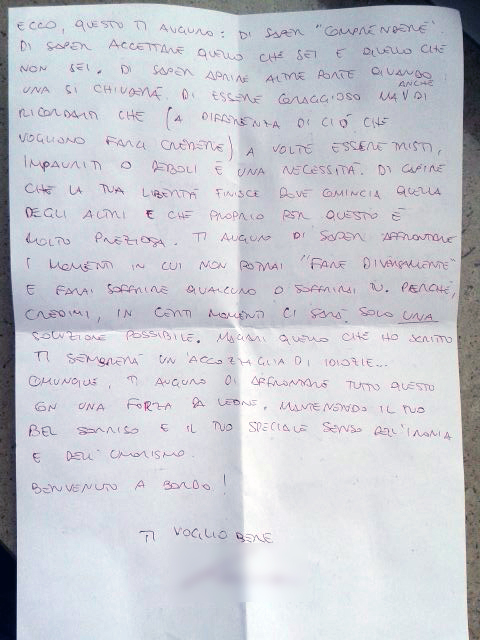 ECCO, QUESTO TI AUGURO: DI SAPER "COMPRENDERE".
DI SAPER ACCETTARE QUELLO CHE SEI E QUELLO CHE
NON SEI. DI SAPER APRIRE ALTRE PORTE QUANDO
UNA SI CHIUDERÀ. DI ESSERE CORAGGIOSO MA ANCHE DI
RICORDARTI CHE (A DIFFERENZA DI CIÒ CHE
VOGLIONO FARCI CREDERE) A VOLTE ESSERE TRISTI,
IMPAURITI O DEBOLI È UNA NECESSITÀ. DI CAPIRE
CHE LA TUA LIBERTÀ FINISCE DOVE COMINCIA QUELLA
DEGLI ALTRI E CHE PROPRIO PER QUESTO È
MOLTO PREZIOSA. TI AUGURO DI SAPER AFFRONTARE
I MOMENTI IN CUI NON POTRAI "FARE DIVERSAMENTE"
E FARAI SOFFRIRE QUALCUNO O SOFFRIRAI TU. PERCHÉ,
CREDIMI, IN CERTI MOMENTI CI SARÀ SOLO UNA
SOLUZIONE POSSIBILE. MAGARI QUELLO CHE HO SCRITTO
TI SEMBRERÀ UN'ACCOZZAGLIA DI IDIOZIE...
COMUNQUE, TI AUGURO DI AFFRONTARE TUTTO QUESTO
CON UNA FORZA DA LEONE, MANTENENDO IL TUO
BEL SORRISO E IL TUO SPECIALE SENSO DELL'IRONIA
E DELL'UMORISMO.
BENVENUTO A BORDO!
TI VOGLIO BENE